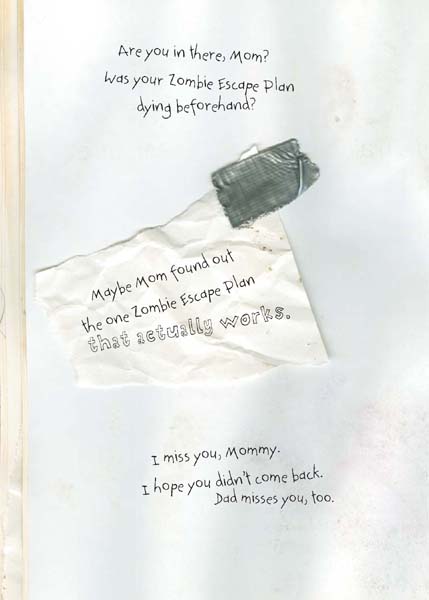 Are you in there, Mom?
Was your Zombie Escape Plan
dying beforehand?
Maybe Mom found out
the one Zombie Escape Plan
that actually works.
I miss you, Mommy.
I hope you didn't come back.
Dad misses you, too.